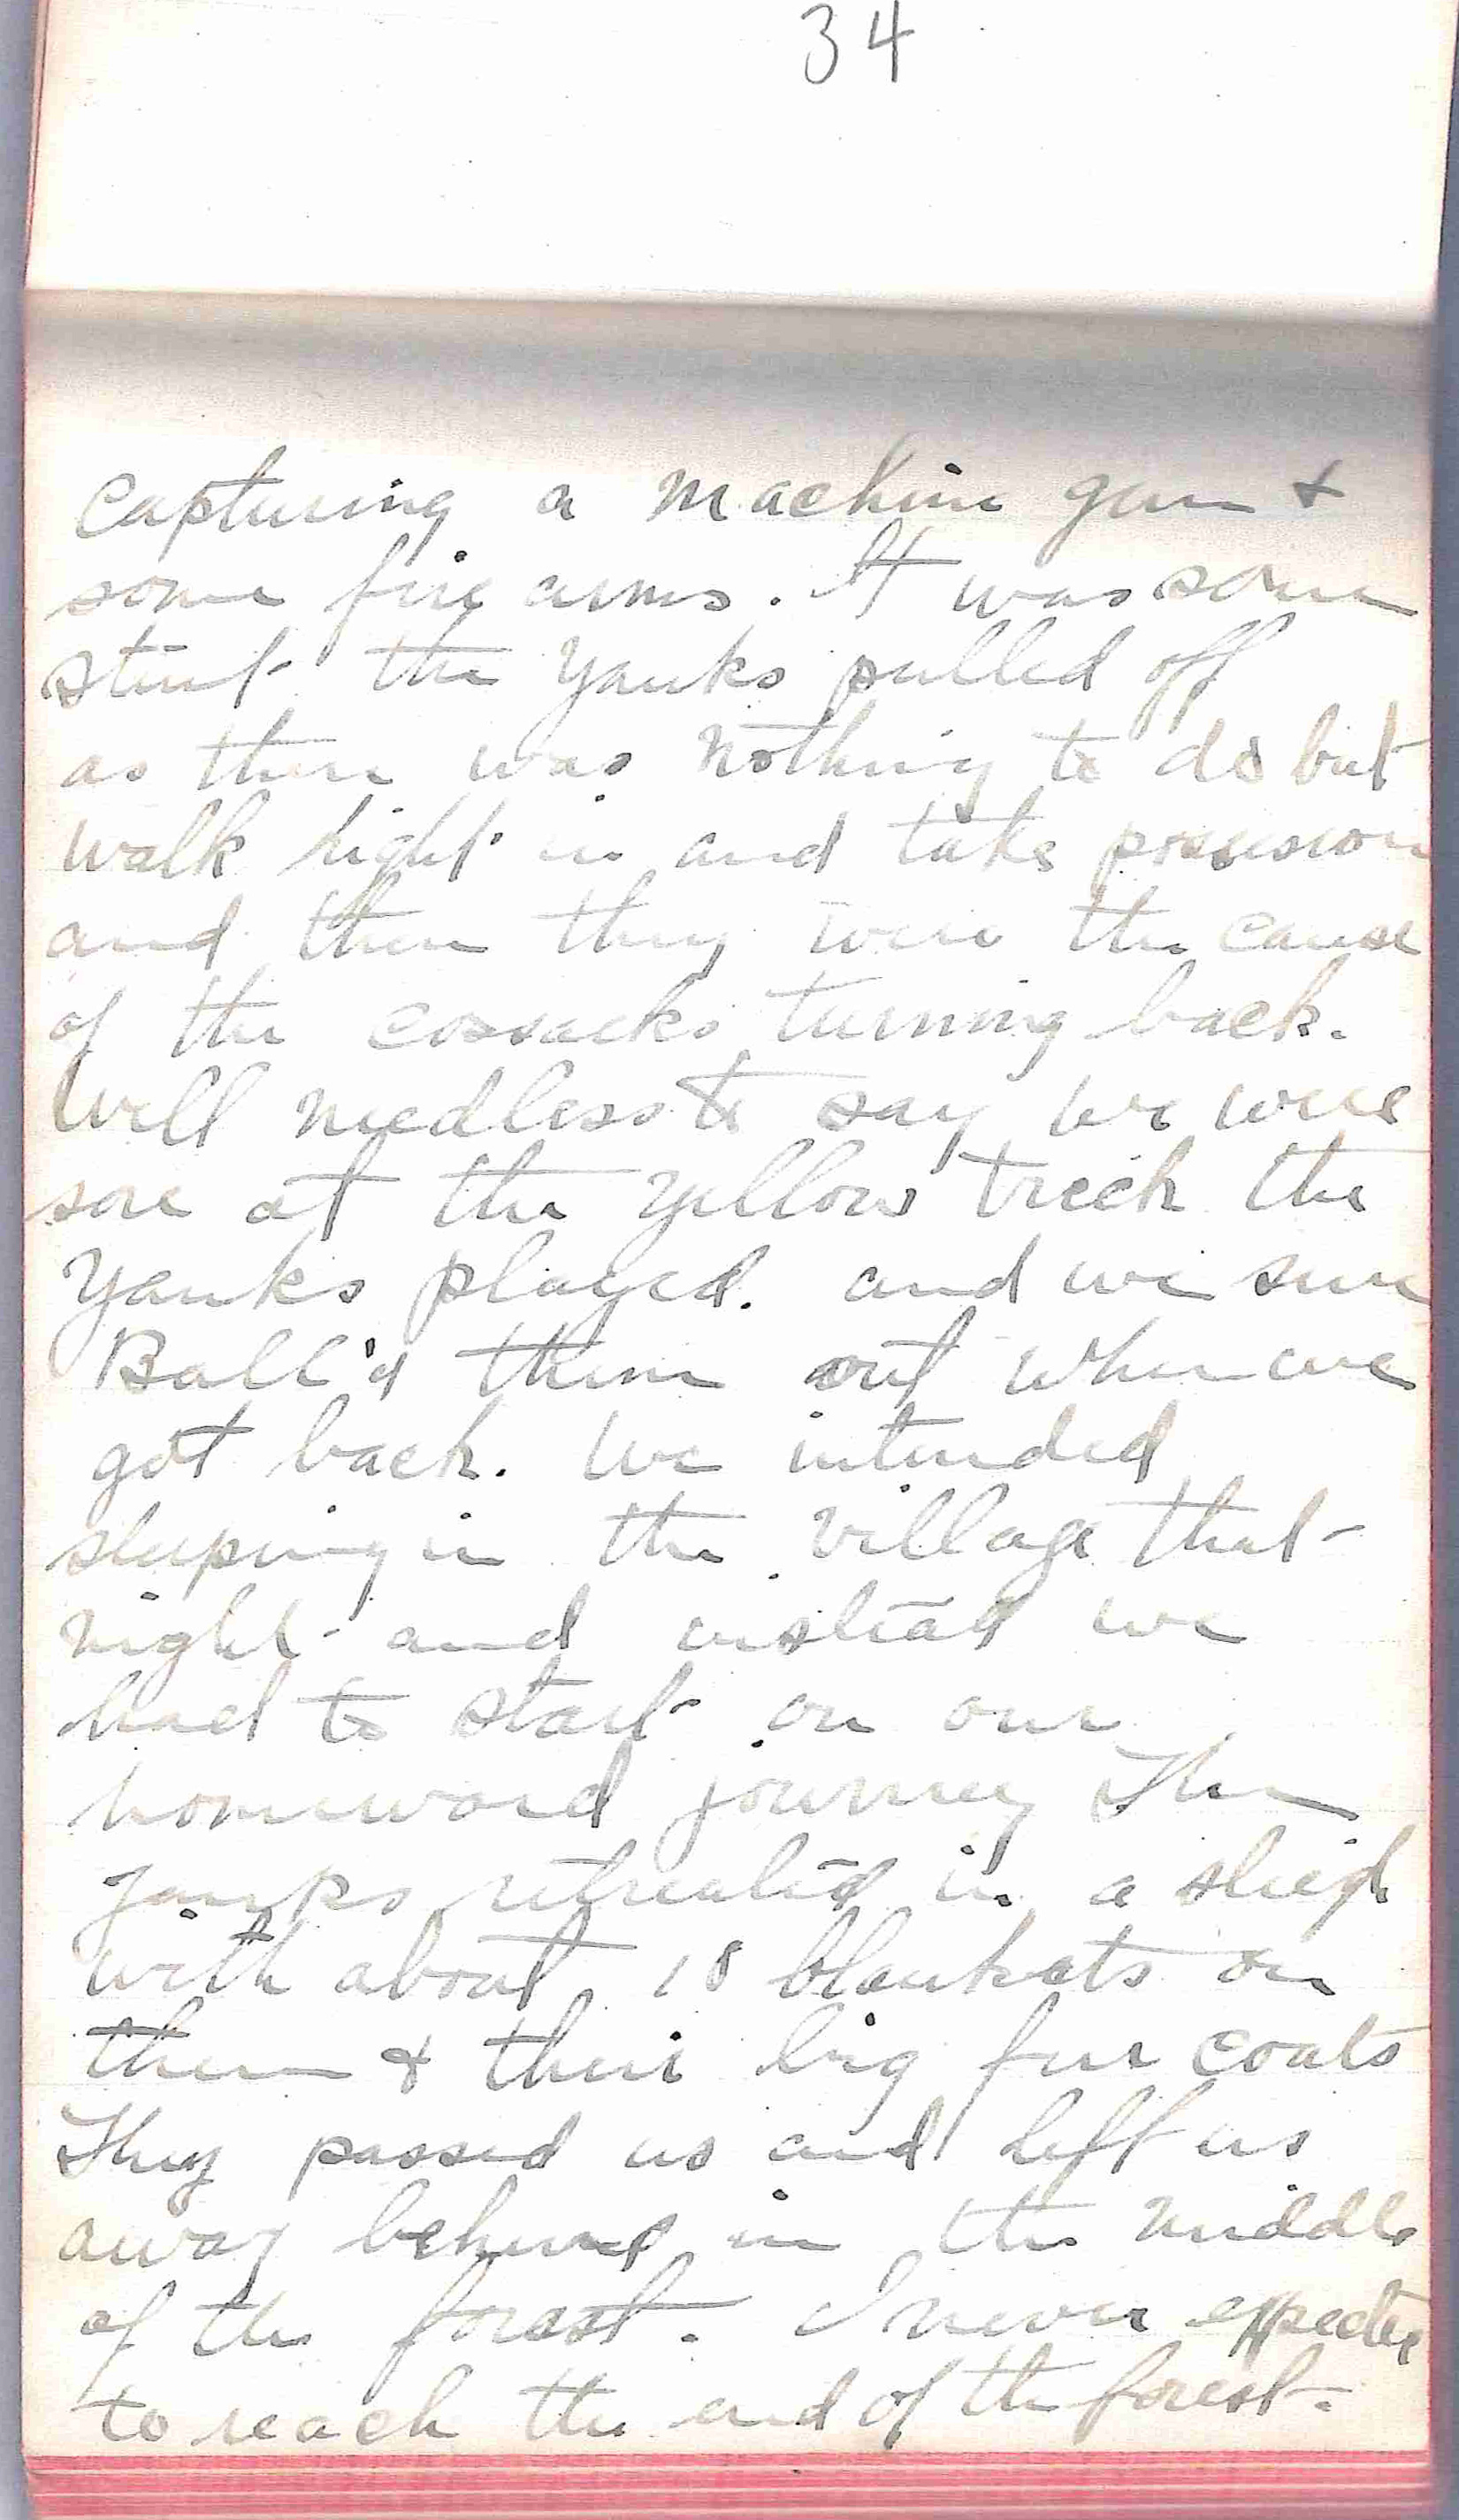 34
capturing a machine gun +
some fire arms. It was some
stunt the Yanks pulled off
as there was nothing to do but
walk right in and take possession
and then they were the cause
of the cossacks turning back.
Well needless to say we were
sore at the yellow trick the
Yanks played. and we sure
Ball'd them out when we
got back. We intended
sleeping in the village that
night and instead we
had to start on our
homeward journey The
yanks retreated in a sleigh
with about 18 blankets on
them & their big fur coats
They passed us and left us
away behind in the middle
of the forest. I never expected
to reach the end of the forest.